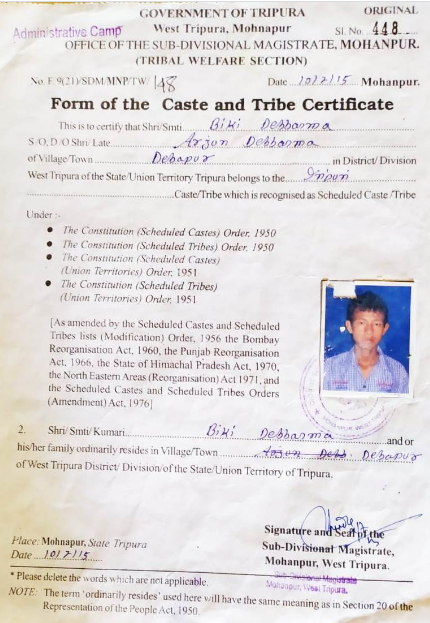 GOVERNMENT OF TRIPURA
ORIGINAL
Administrative Camp
West Tripura, Mohnapur
Sl. No. 448
OFFICE OF THE SUB-DIVISIONAL MAGISTRATE, MOHANPUR.
(TRIBAL WELFARE SECTION)
No. F. 9(21)/SDM/MNP/TW/ 148
Date 10/7/15 Mohanpur.
Form of the Caste and Tribe Certificate
This is to certify that Shri/Smti Biki Debbarma
S/O, D/O Shri/ Late Arjun Debbarma
of Village/Town Debapur in District/ Division
West Tripura of the State/Union Territory Tripura belongs to the Tripuri
Caste/Tribe which is recognised as Scheduled Caste /Tribe
Under :-
● The Constitution (Scheduled Castes) Order, 1950
● The Constitution (Scheduled Tribes) Order, 1950
● The Constitution (Scheduled Castes)
(Union Territories) Order, 1951
● The Constitution (Scheduled Tribes)
(Union Territories) Order, 1951
[As amended by the Scheduled Castes and Scheduled
Tribes lists (Modification) Order, 1956 the Bombay
Reorganisation Act, 1960, the Punjab Reorganisation
Act, 1966, the State of Himachal Pradesh Act, 1970,
the North Eastern Areas (Reorganisation) Act 1971, and
the Scheduled Castes and Scheduled Tribes Orders
(Amendment) Act, 1976]
2. Shri/ Smti/ Kumari Biki Debbarma and or
his/her family ordinarily resides in Village/Town Arjun Debb Debapur
of West Tripura District/ Division/of the State/Union Territory of Tripura.
Signature and Seal of the
Place: Mohnapur, State Tripura
Sub-Divisional Magistrate,
Date 10/7/15
Mohanpur, West Tripura.
Sub-Divisional Magistrate
Mohanpur, West Tripura.
* Please delete the words which are not applicable.
NOTE: The term 'ordinarily resides' used here will have the same meaning as in Section 20 of the
Representation of the People Act, 1950.